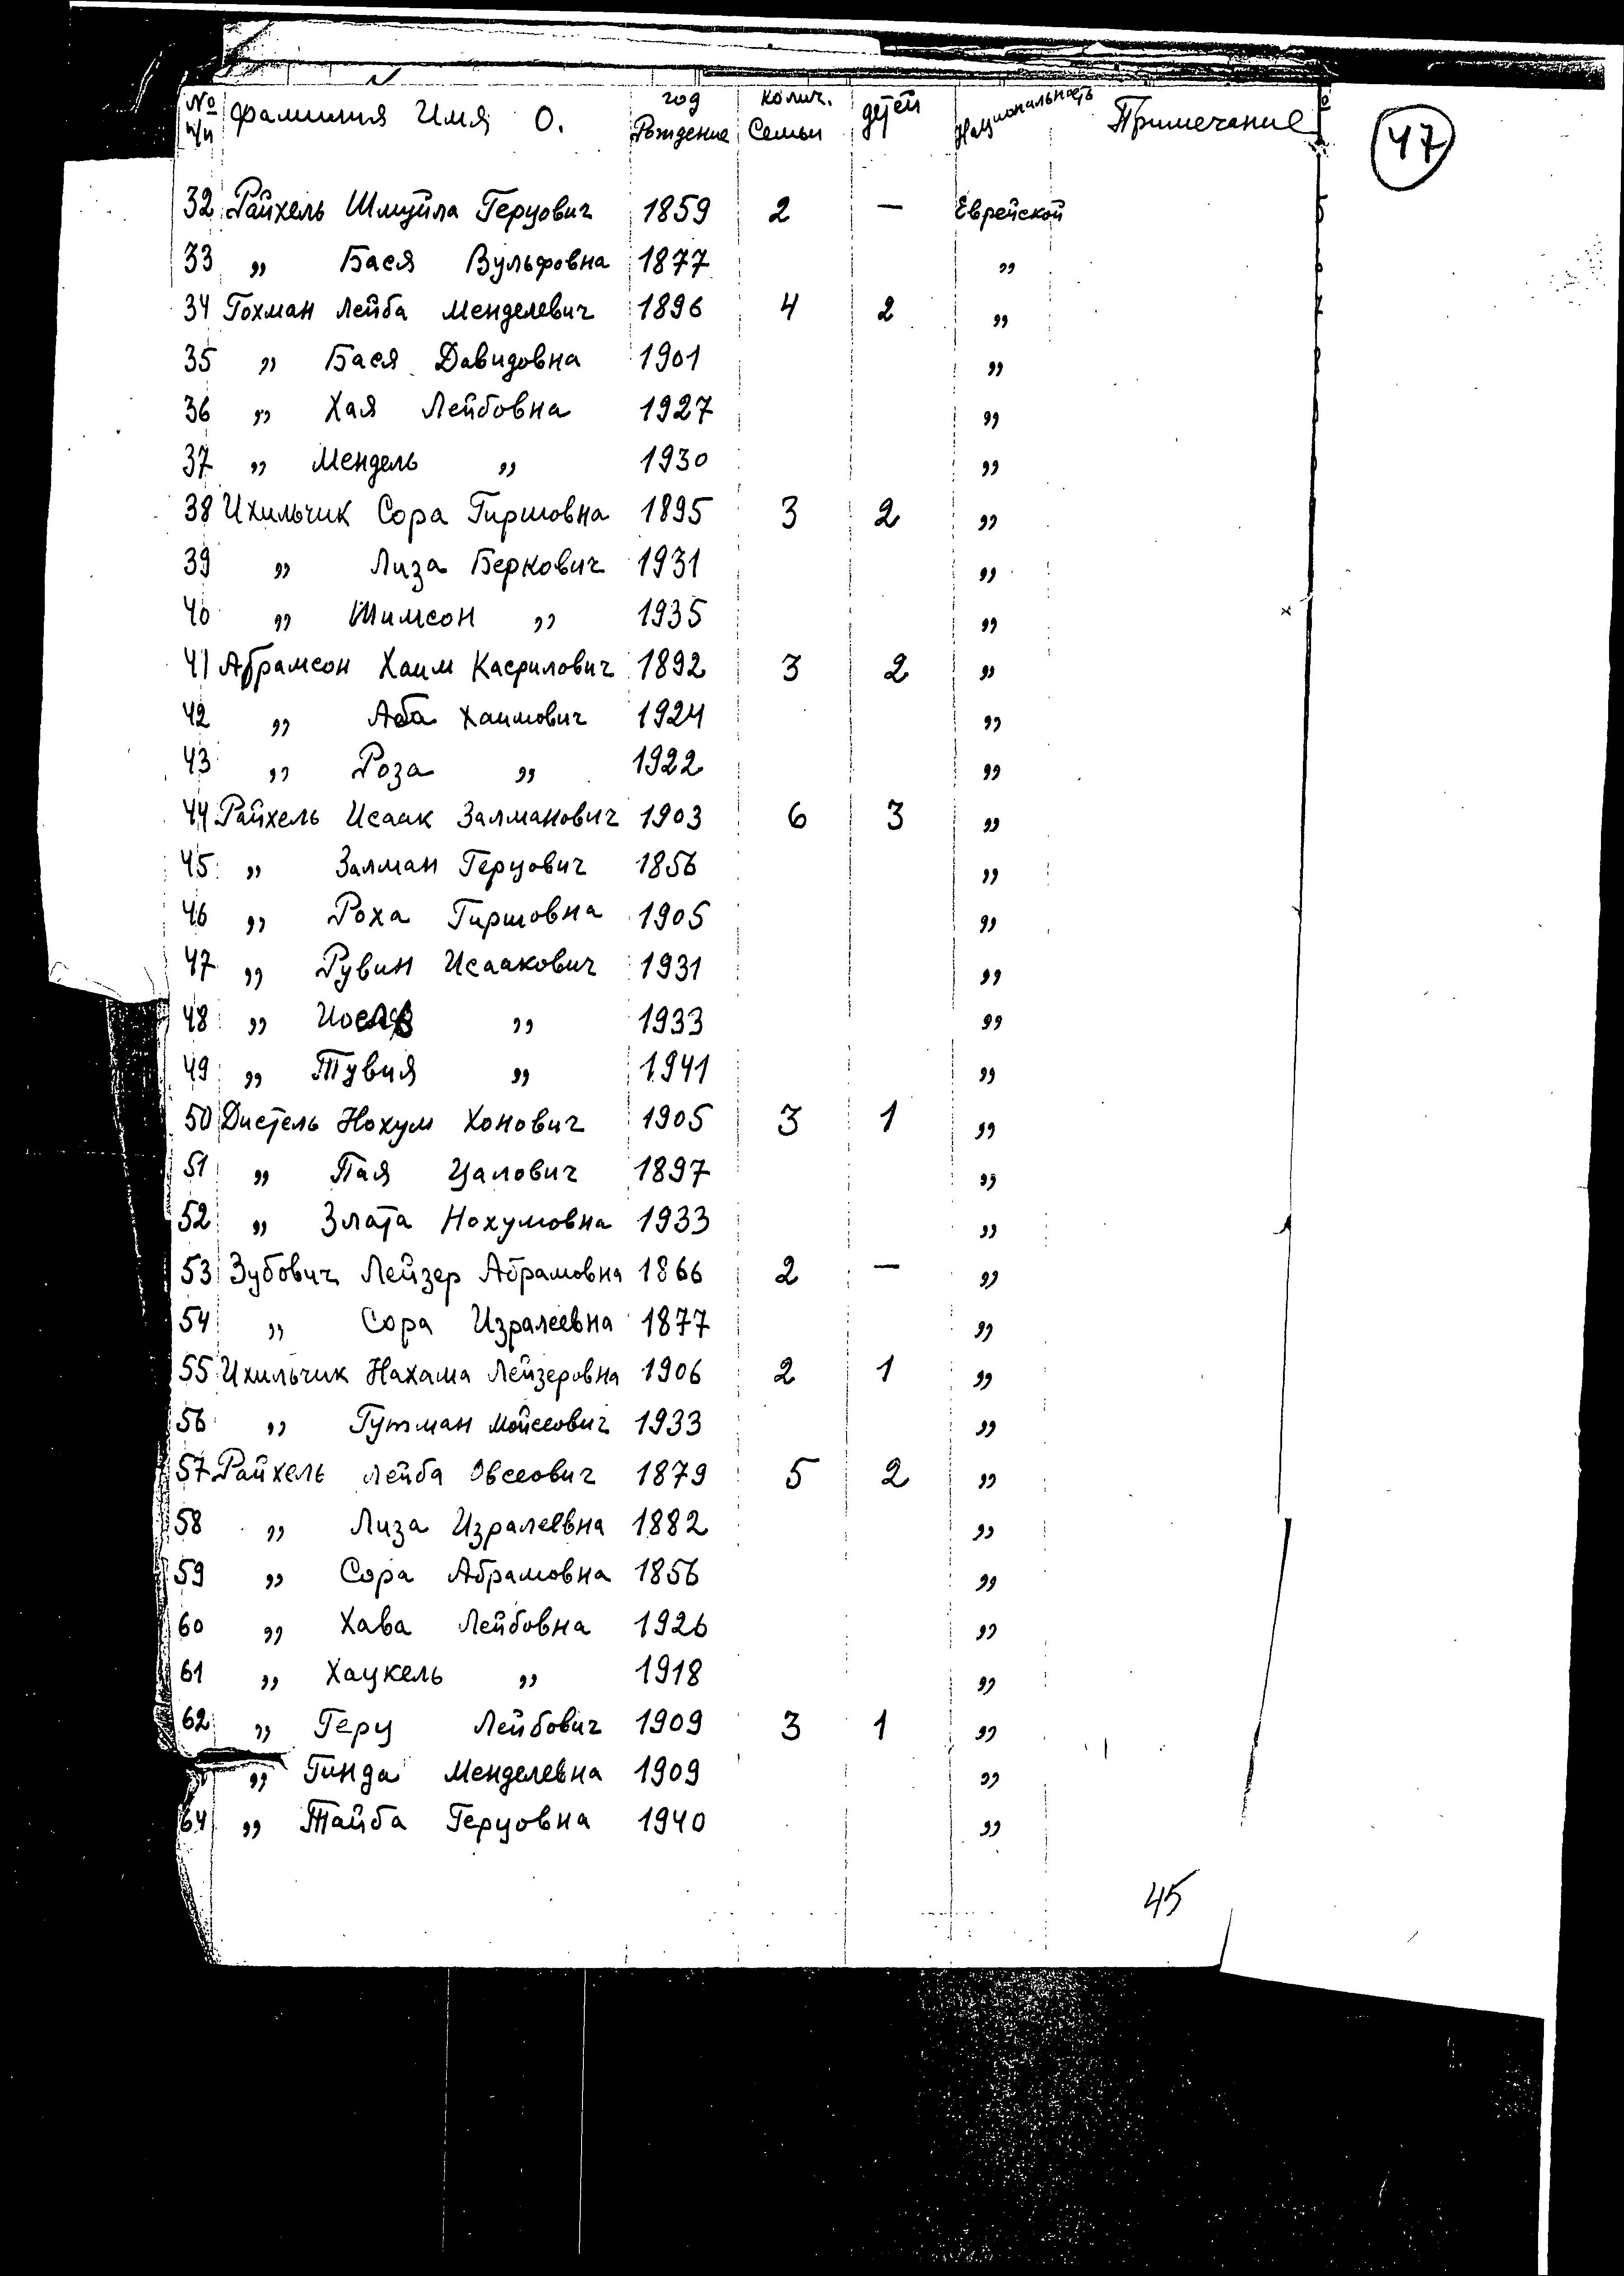 № п/п фамилия Имя О. год Рождение колич. Семьи детей Национальность Примечание
47
32 Райхель Шмуйла Герцович 1859 2 — Еврейской
33 „ Бася Вульфовна 1877 „
34 Гохман Лейба Менделевич 1896 4 2 „
35 „ Бася Давидовна 1901 „
36 „ Хая Лейбовна 1927 „
37 „ Мендель „ 1930 „
38 Ихильчик Сора Гиршовна 1895 3 2 „
39 „ Лиза Беркович 1931 „
40 „ Шимсон „ 1935 „
41 Абрамсон Хаим Касрилович 1892 3 2 „
42 „ Аба Хаимович 1924 „
43 „ Роза „ 1922 „
44 Райхель Исаак Залманович 1903 6 3 „
45 „ Залман Герцович 1856 „
46 „ Роха Гиршовна 1905 „
47 „ Рувин Исаакович 1931 „
48 „ „ 1933 „
49 „ Тувия „ 1941 „
50 Дистель Нохум Хонович 1905 3 1 „
51 „ Пая Цалович 1897 „
52 „ Злата Нохумовна 1933 „
53 Зубович Лейзер Абрамовна 1866 2 — „
54 „ Сора Изралеевна 1877 „
55 Ихильчик Нахама Лейзеровна 1906 2 1 „
56 „ Гутман Мойсеович 1933 „
57 Райхель Лейба Овсеович 1879 5 2 „
58 „ Лиза Изралеевна 1882 „
59 „ Сора Абрамовна 1856 „
60 „ Хава Лейбовна 1926 „
61 „ Хацкель „ 1918 „
62 „ Герц Лейбович 1909 3 1 „
„ Гинда Менделевна 1909 „
64 „ Тайба Герцовна 1940 „
45